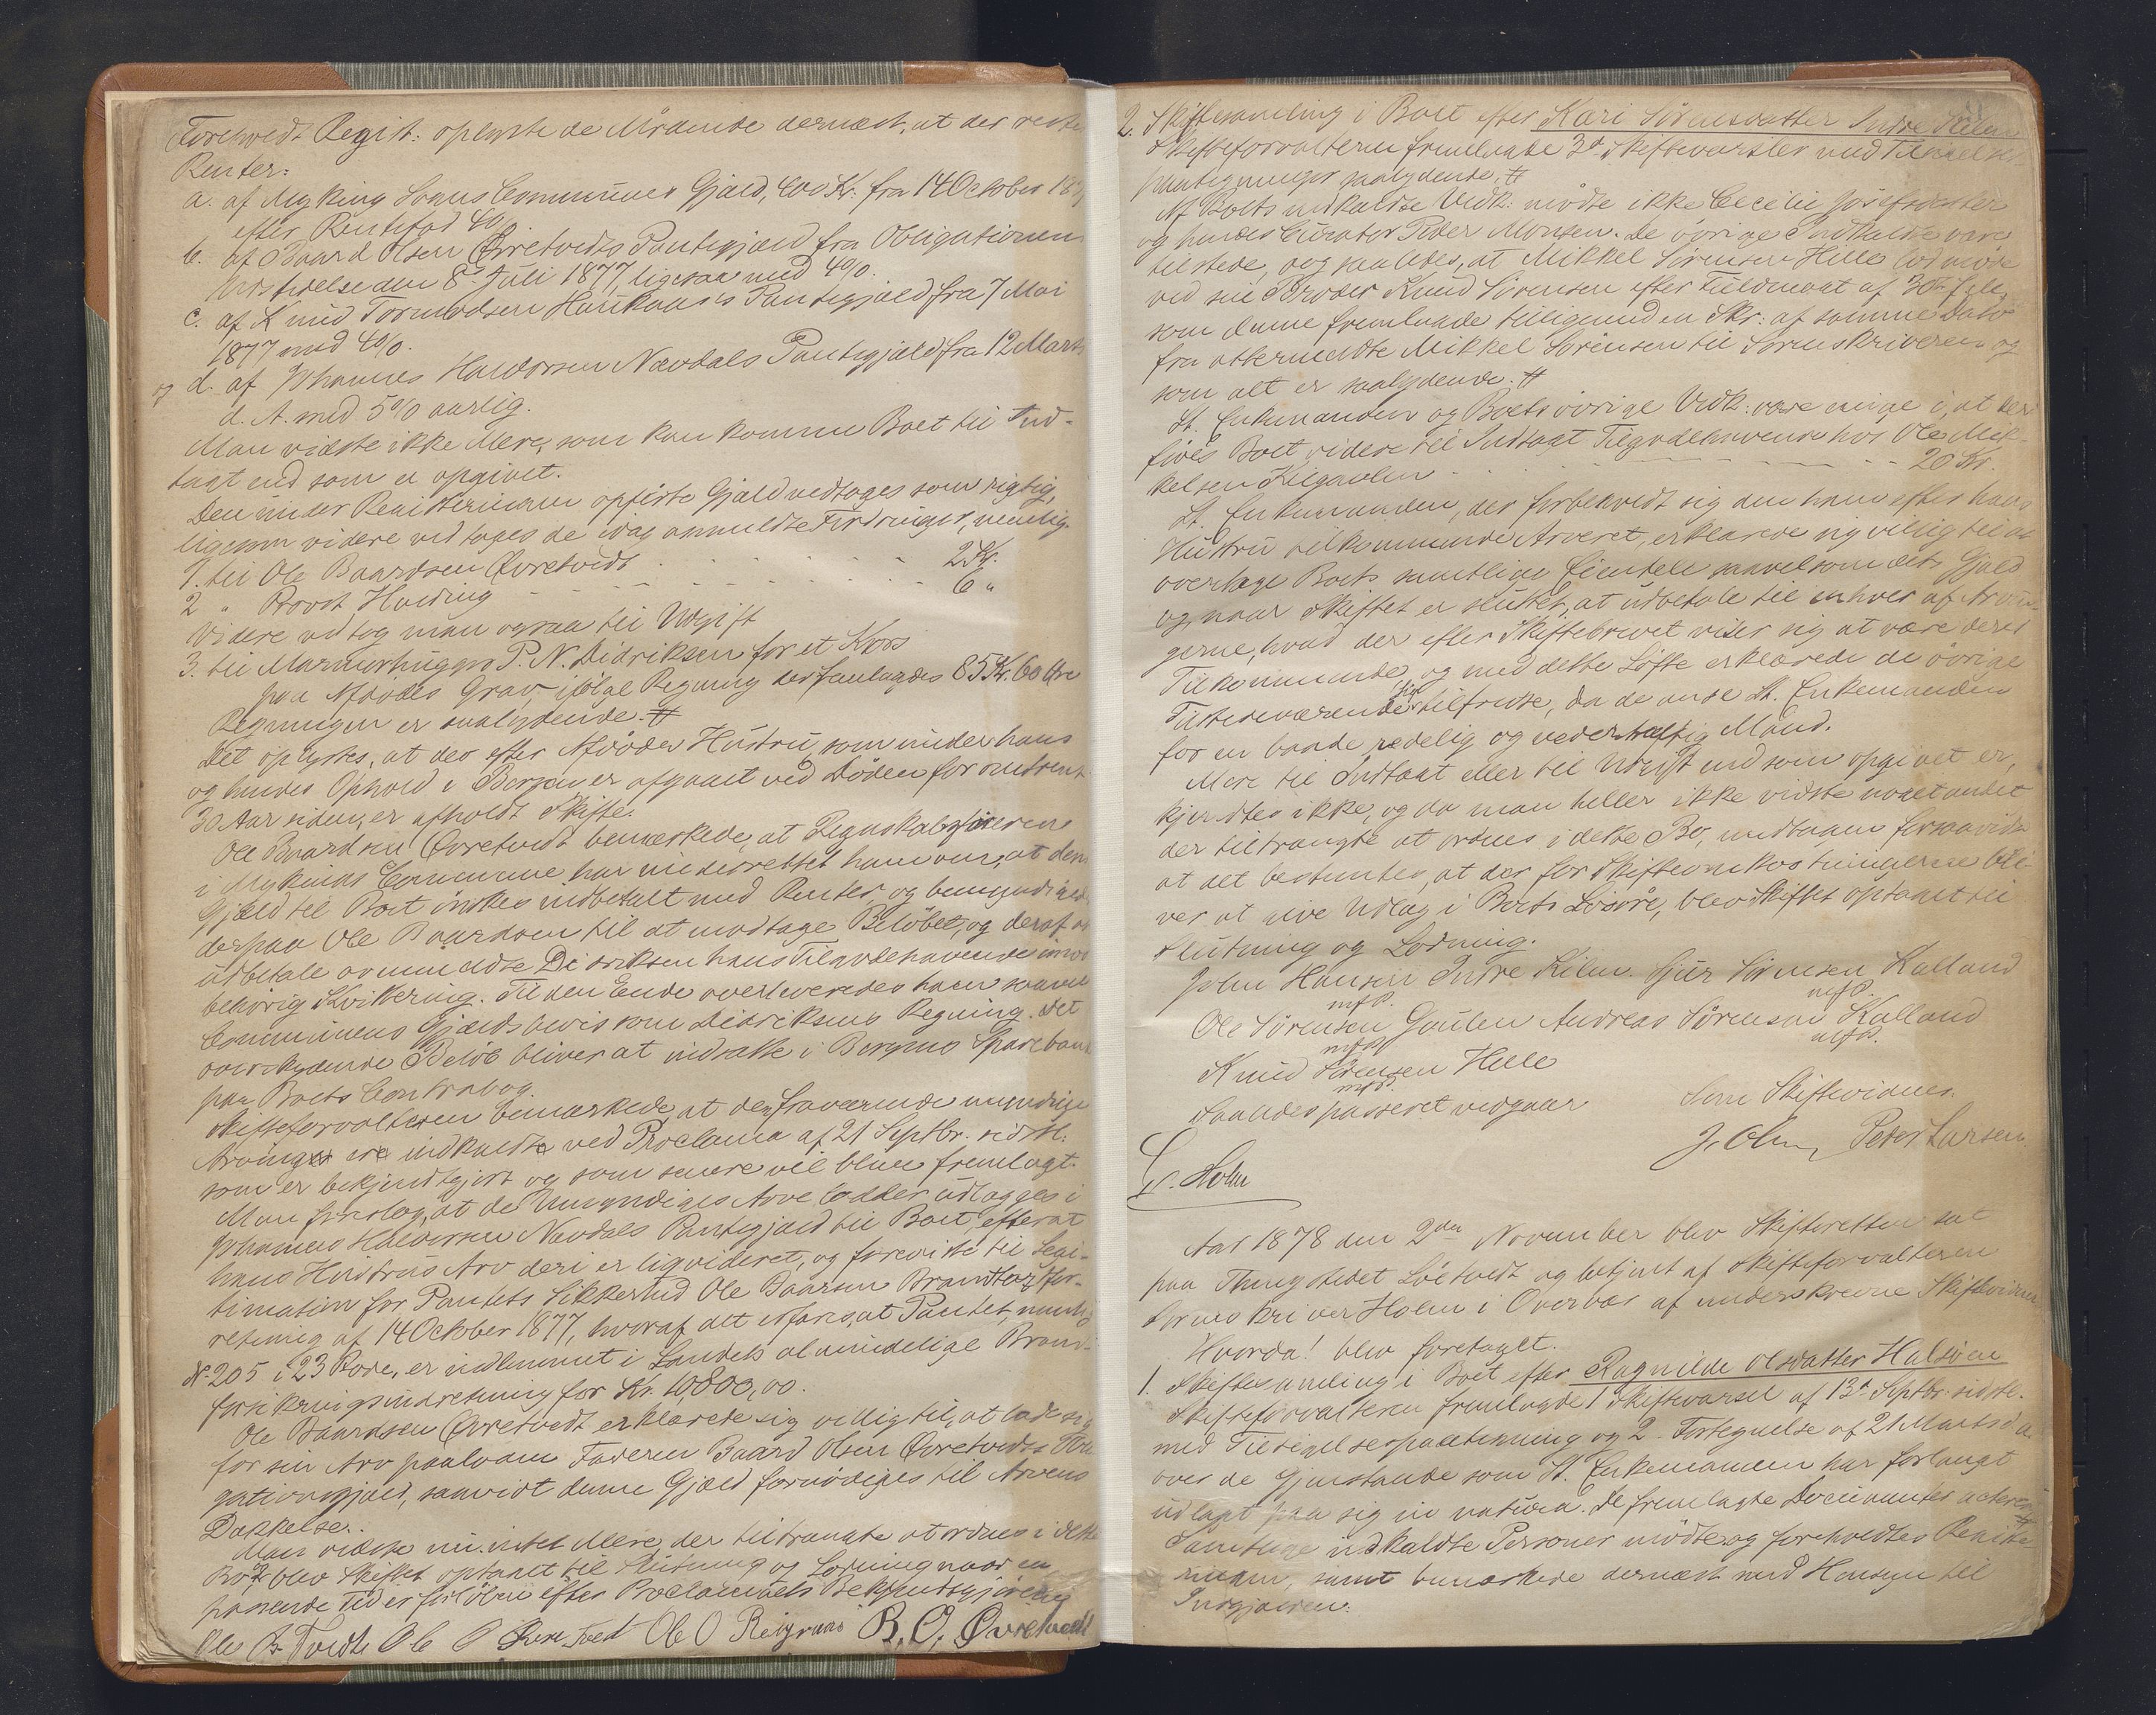 Foreholdt Regist: oplyste de Mødende dernæst, at der rester
Renter:
a. af Myking Sogns Communes Gjæld, 400 Kr. fra 14 October 187
efter Rentefod 4%.
b. af Baard Olsen Øvretvedts Pantegjæld fra Obligationens
Udstedelse den 8de Juli 1877, ligesaa med 4%.
c. af Knud Tormodsen Haukaas's Pantegjæld fra 7 Mai
1877 med 4%.
og d. af Johannes Haldorsen Nævdals Pantegjæld fra 12 Marts
d. A. med 5% aarlig.
Man vidste ikke Mere, som kan komme Boet til Ind-
tægt end som er opgivet.
Den under Registeringen opførte Gjæld vedtoges som rigtig,
ligesom videre vedtoges de idag anmeldte Fordringer, nemlig.
1. til Ole Baardsen Øvretvedt 2 Kr.
2 " Provst Hvoding 6 "
Videre vedtog man ogsaa til Udgift
3. til Marmorhugger P. N. Didriksen for et Kors
paa Afdødes Grav, ifølge Regning der fremlagdes 85 Kr. 60 Øre
Regningen er saalydende. #
Det oplystes, at der efter Afdødes Hustru, som under hans
og hendes Ophold i Bergen er afgaaet ved Døden for omtrent
30 Aar siden, er afholdt Skifte.
Ole Baardsen Øvretvedt bemærkede, at Regnskabsføreren
i Mykings Commune har underrettet ham om, at dens
Gjæld til Boet ønskes indbetalt med Renter, og bemyndigedes
derpaa Ole Baardsen til at modtage Beløbet, og deraf at
udbetale ovennævnte Didriksen hans Tilgodehavende imod
behørig Kvittering. Til den Ende overleveredes ham saavel
Communens Gjældsbevis som Didriksens Regning. Det
overskydende Beløb bliver at indsætte i Bergens Sparebank
paa Boets Contrabog.
Skifteforvalteren bemærkede, at den fraværende myndige
Arving er indkaldt ved Proclama af 21 Septbr. sidstl:
som er bekjendtgjort og som senere vil blive fremlagt.
Man foreslog, at de Umyndiges Arvelodder udlægges i
Johannes Haldorsen Nævdals Pantegjæld til Boet, efterat
hans Hustrus Arv deri er liqvideret, og foreviste til Legi-
timation for Pantets Sikkerhed Ole Baarsen Brandtaxtfor-
retning af 14 October 1877, hvoraf det erfares, at Pantet, nemlig
No 205 i 23 Rode, er indlemmet i Landets almindelige Brand-
forsikringsindretning for Kr. 10800,00.
Ole Baardsen Øvretvedt erklærede sig villig til, at lade sig
for sin Arv paalægge Faderen Baard Olsen Øvretvedts Obli-
gationsgjæld, saavidt denne Gjæld fornødiges til Arvens
Dækkelse.
Man vidste nu intet Mere, der tiltrængte at ordnes i dette
Bo, og blev Skiftet optaget til Slutning og Lodning naar en
passende Tid er forløben efter Proclamaets Bekjendtgjørelse
Ole B. Tvedte Ole O Øvre Tvedt Ole O Reigraas B. O. Øvretvedt
2. Skiftesamling i Boet efter Kari Sørensdatter Indre Kilen
Skifteforvalteren fremlagde 3de Skiftevarsler med Tilsigelses-
paategninger saalydende. #
Af Boets indkaldte Vedk: mødte ikke Cecilie Josefsdatter
og hendes Curator Peder Monsen. De øvrige Indkaldte vare
tilstede, dog saaledes, at Mikkel Sørensen Hille lod møde
ved sin Broder Knud Sørensen efter Fuldmagt af 30te Juli,
som denne fremlagde tilligemed en Skr: af samme Dato
fra bemeldte Mikkel Sørensen til Sorenskriveren og
som alt er saalydende. #
St. Enkemanden og Boets øvrige Vedk: vare enige i, at der
føres Boet videre til Indtægt Tilgodehavende hos Ole Mik-
kelsen Kilgavlen 20 Kr.
St. Enkemanden, der forbeholdt sig den ham efter hans
Hustru tilkommende Arveret, erklærede sig villig til at
overtage Boets samtlige Eiendele saavelsom dets Gjæld
og, naar Skiftet er sluttet, at udbetale til enhver af Arvin-
gerne, hvad der efter Skiftebrevet viser sig at være deres
Tilkommende, og med dette Løfte erklærede de øvrige
Tilstedeværende sig tilfredse, da de anse St. Enkemanden
for en baade redelig og vederhæftig Mand.
Mere til Indtægt eller til Udgift end som opgivet er,
kjendtes ikke, og da man heller ikke vidste noget andet
der tiltrængte at ordnes i dette Bo, undtagen forsaavidt
at det bestemtes, at der for Skifteomkostningerne bli-
ver at give Udlæg i Boets Løsøre, blev Skiftet optaget til
Slutning og Lodning.
John Hansen Indre Kilen Sjur Sørensen Kalland
mfP. mfP.
Ole Sørensen Gaulen Andreas Sørensen Kalland
mfP. mfP.
Knud Sørensen Hille
mfP.
Saaledes passeret vedgaar Som Skiftevidner.
J. Olsen, Peder Larsen
G. Holm
Aar 1878 den 2den November blev Skifteretten sat
paa Thingstedet Løtvedt og betjent af Skifteforvalteren
Sorenskriver Holm i Overvær af underskrevne Skiftevidner.
Hvorda! blev foretaget.
1. Skiftesamling i Boet efter Ragnilde Olsdatter Halsøen
Skifteforvalteren fremlagde 1 Skiftevarsel af 13de Septbr. sidstl.
med Tilsigelsespaategning og 2. Fortegnelse af 21 Marts d. A.
over de Gjenstande som St. Enkemanden har forlangt
udlagt paa sig in natura. De fremlagte Documenter acteres #
Samtlige indkaldte Personer mødte og foreholdtes Registe-
ringen, samt bemærkede dernæst med Hensyn til
Indgjælden: